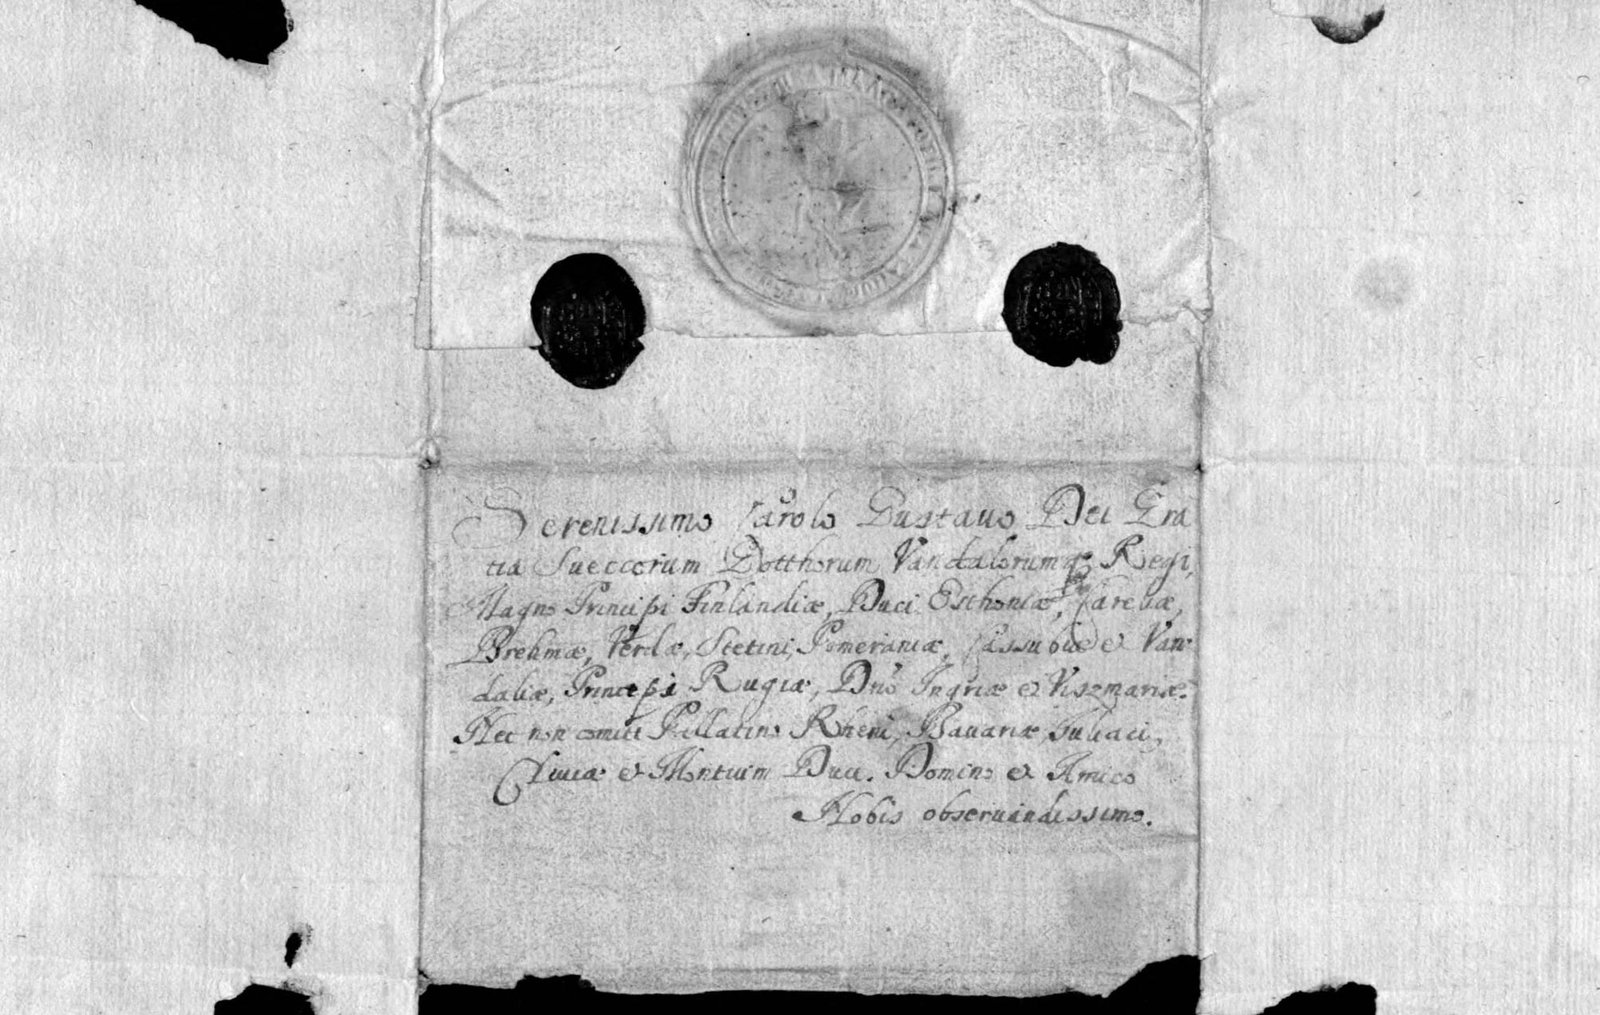 Serenissimo Carolo Gustavo Dei Gra
tia Sueccorum Gotthorum Vandalorumq Regi,
Magno Principi Finlandiæ, Duci Esthoniæ, Careliæ,
Brehmæ, Verdæ, Stetini, Pomeraniæ, Cassubiæ et Van
daliæ, Principi Rugiæ, Dno Ingriæ et Viszmariæ.
Nec non comiti Pallatino Rheni, Bavariæ, Juliaci,
Cliviæ et Montium Duci. Domino et Amico
Nobis observandissimo.